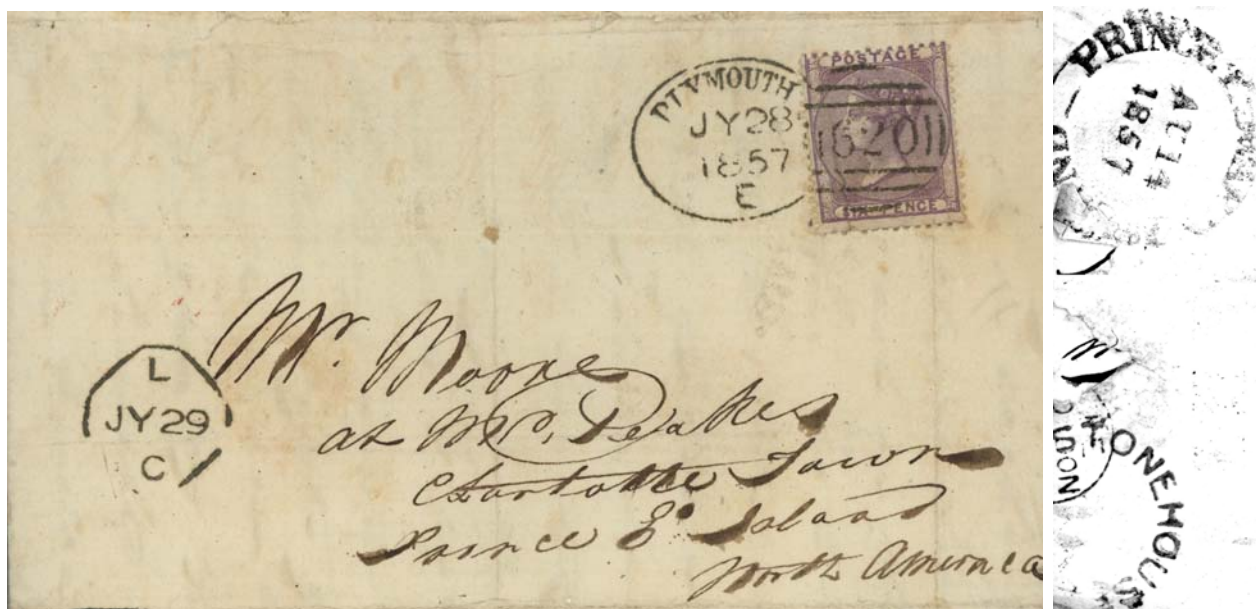 PLYMOUTH
JY 28
1857
E
620
POSTAGE
SIX PENCE
L
JY 29
C
Mr. Moore
at Mr. Peakes
Charlotte Town
Prince E. Island
North America
PRINCE
AU 14
1857
ND
STONEHOUSE